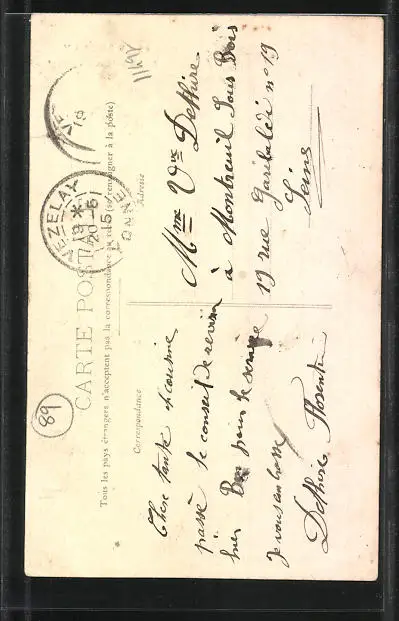 CARTE POSTALE
Tous les pays étrangers n'acceptent pas la correspondance au recto (se renseigner à la poste)
Correspondance
Adresse
89
VEZELAY
20-5
YONNE
Chère tante et cousine
passé le conseil de revision
hier Bon pour le service
Je vous embrasse
Dethire Florentin
Mme Vve Dethire
à Montreuil Sous Bois
19 rue Garibaldi nº 19
Seine